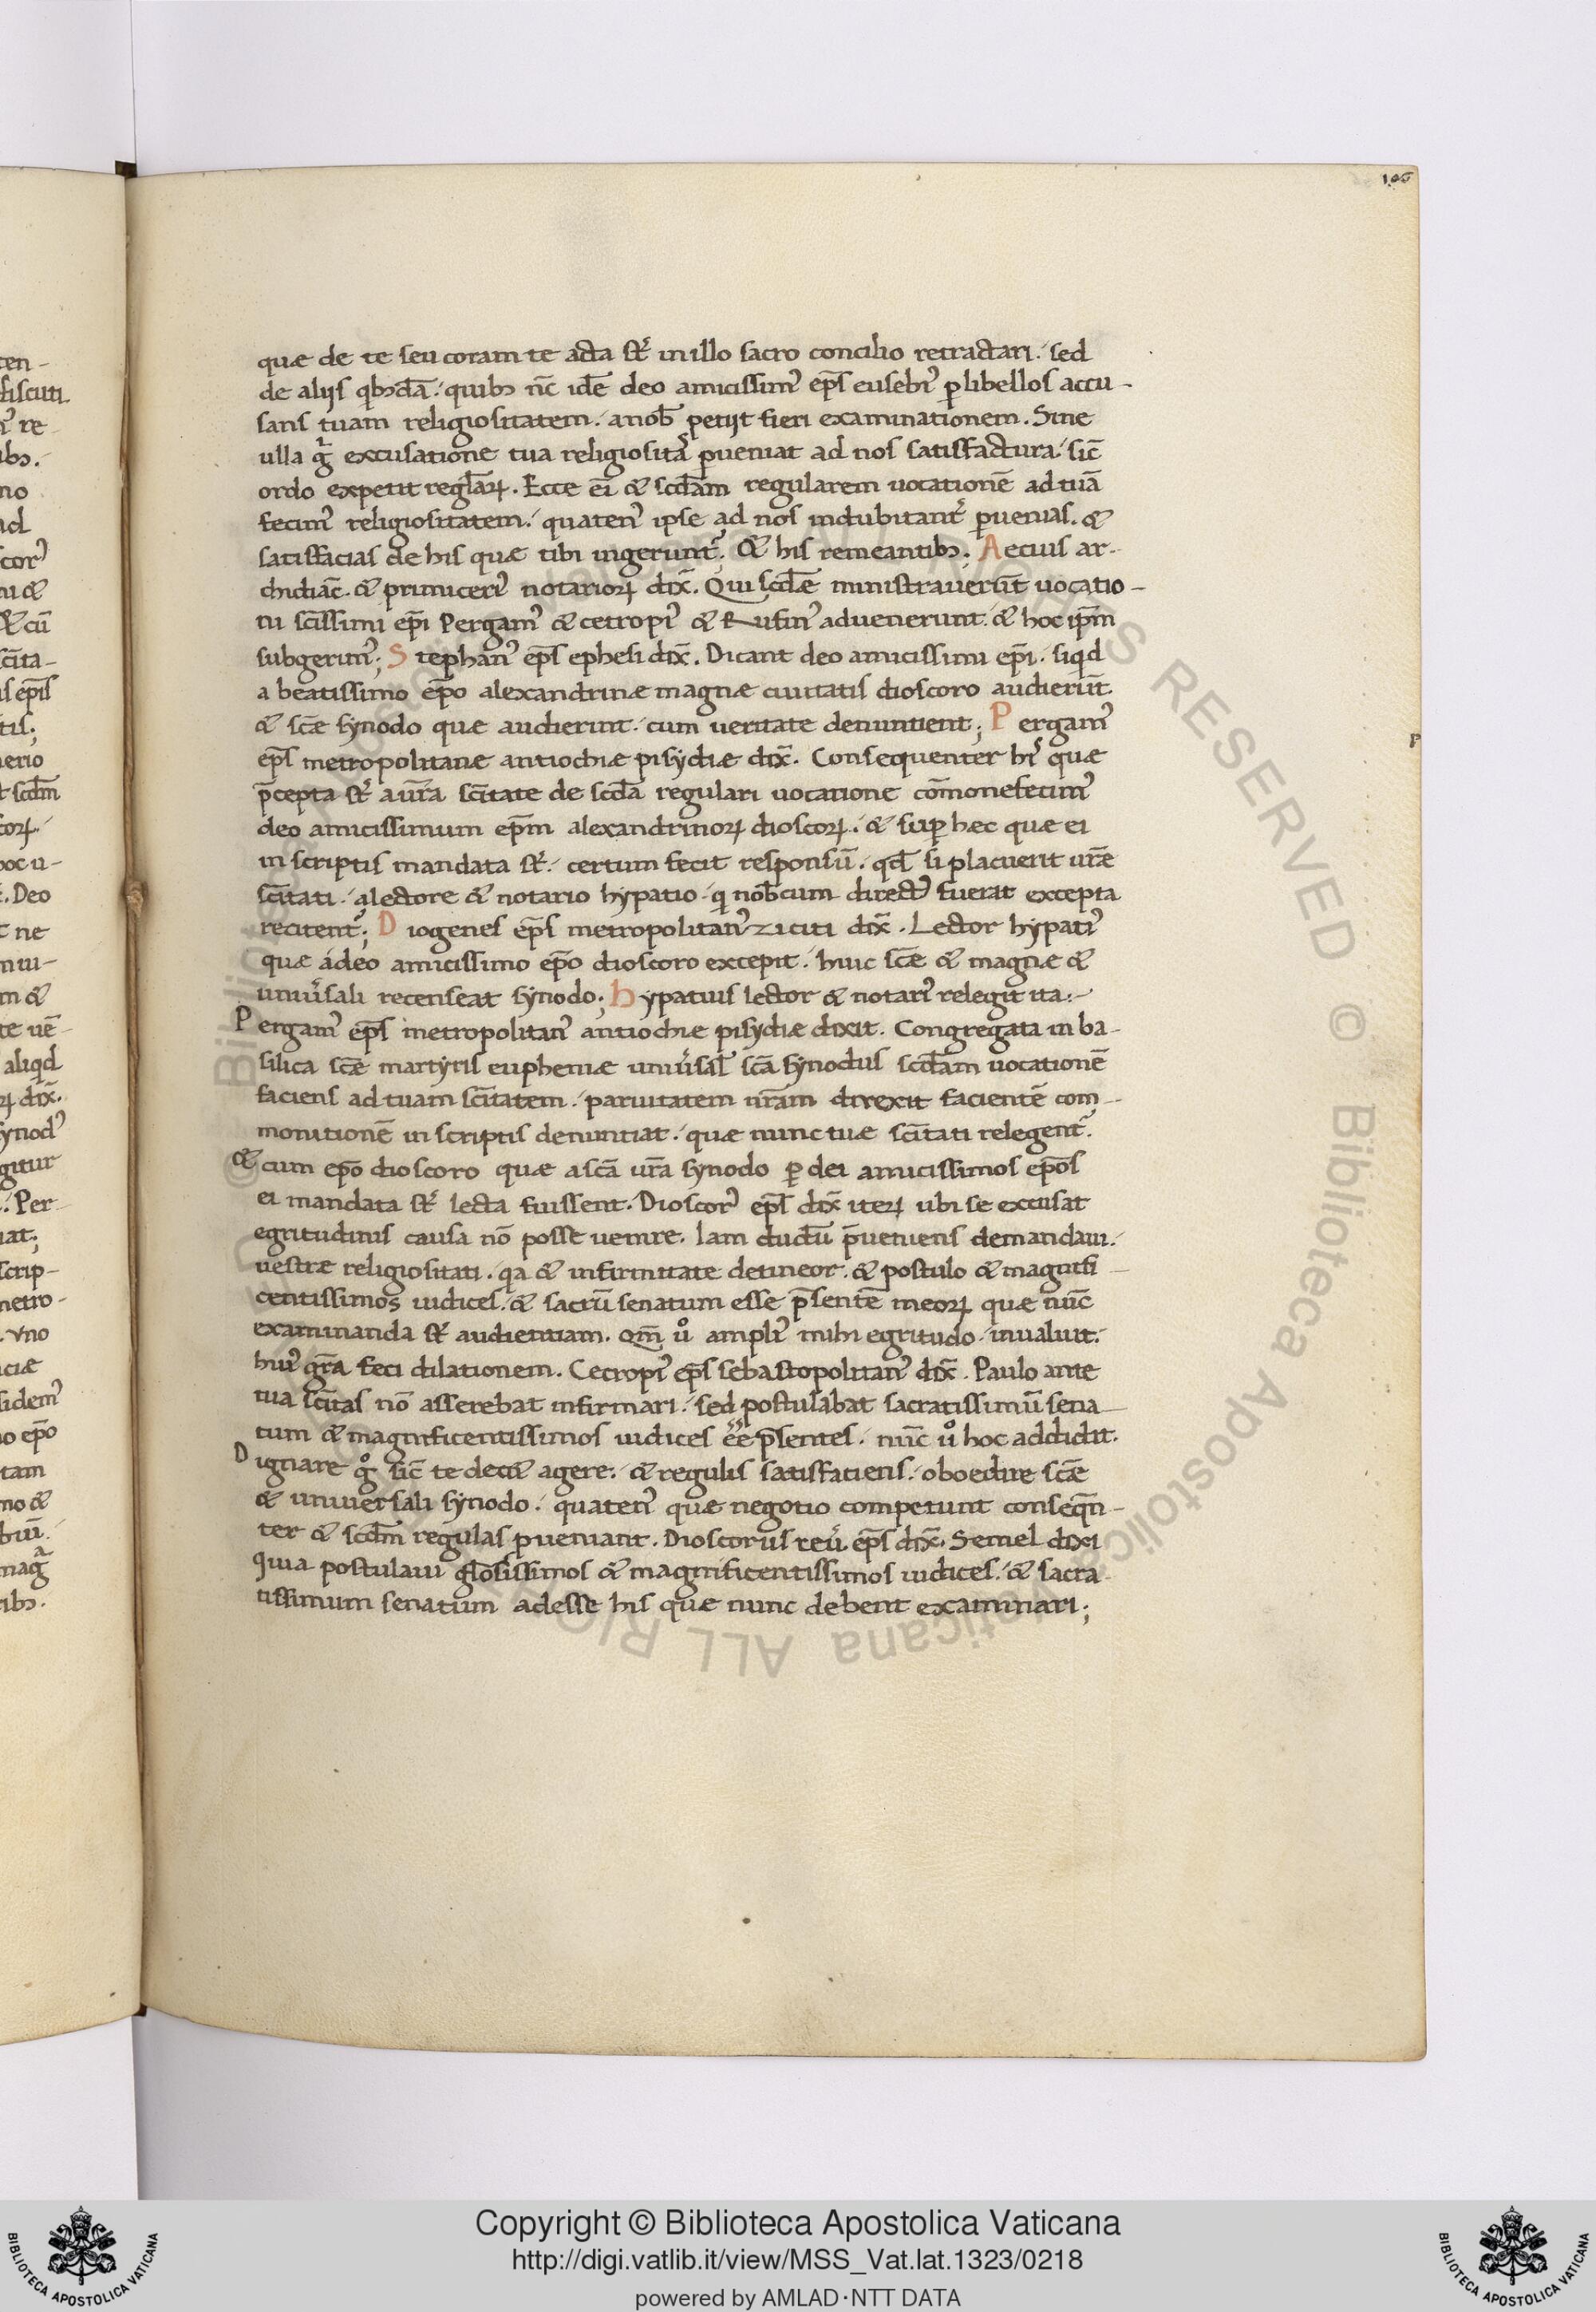 106
quæ de te seu coram te acta st̃ in illo sacro concilio retractari. sed
de aliis qbꝫdā. quibꝫ nc̄ idē deo amicissimꝰ ep̄s eusebiꝰ ꝑ libellos accu-
sans tuam religiositatem. a nob̄ petiit fieri examinationem. Sine
ulla g̊ excusatione tua religiositas ꝑueniat ad nos satisfactura. sic̄
ordo expetit regl̄aꝝ. Ecce ei̅ & scd̄am regularem uocationē ad tuā
fecimꝰ religiositatem. quatenꝰ ipse ad nos indubitant̾ ꝑuenias. &
satisfacias de his quæ tibi ingerunt̾; & his remeantibꝫ. Aetius ar-
chidiac̄. & primiceriꝰ notarioꝝ dix̄. Qui scd̄æ ministraverūt uocatio-
ni sc̄issimi ep̄i Pergamꝰ & cetropiꝰ & Rufinꝰ aduenerunt. & hoc ip̄m
subgerimꝰ; Stephanꝰ ep̄s ephesi dix̄. Dicant deo amicissimi ep̄i. siqd
a beatissimo ep̄o alexandrinæ magnæ ciuitatis dioscoro audierūt.
& sc̄æ synodo quæ audierunt. cum ueritate denuntient; Pergamꝰ
ep̄s metropolitanæ antiochiæ pisydiæ dix̄. Consequenter hiˢ quæ
p̄cepta st̃ a ur̄a sc̄itate de scd̄a regulari uocatione com̄onefecimꝰ
deo amicissimum ep̄m alexandrinoꝝ dioscoꝝ. & suꝑ hec quæ ei
in scriptis mandata st̃. certum fecit responsū. qd̄ si placuerit ur̄æ
sc̄itati. a lectore & notario hypatio. qi nob̄cum directꝰ fuerat excepta
recitent̾; Diogenes ep̄s metropolitanꝰ ziciti dix̄. Lector hypatiꝰ
quæ a deo amicissimo ep̄o dioscoro excepit. huic sc̄æ & magnæ &
uniu̾sali recenseat synodo; hypatius lector & notariꝰ relegit ita:-
Pergamꝰ ep̄s metropolitanꝰ antiochiæ pisydiæ dixit. Congregata in ba-
silica sc̄æ martyris eupheniæ uniu̾sal̄ sc̄a synodus scd̄am uocationē
faciens ad tuam sc̄itatem. paruitatem nr̄am direxit facientē com-
monitionē in scriptis denuntiat. quæ nunc tuæ sc̄itati relegent̾.
& cum ep̄o dioscoro quæ a sc̄a ur̄a synodo ꝑ dei amicissimos ep̄os
ei mandata st̃ lecta fuissent. Dioscorꝰ ep̄s dix̄ iteꝝ ubi se excusat
egritudinis causa nō posse uenire. Iam dudū p̄ueniens demandaui.
uestræ religiositati. qa & infirmitate detineor. & postulo & magnifi-
centissimos iudices. & sacrū senatum esse p̄sentē meoꝝ quæ nūc
examinanda st̃ audientiam. Qm̄ ů ampliꝰ mihi egritudo inualuit.
huiꝰ gr̄a feci dilationem. Cecropiꝰ ep̄s sebastopolitanꝰ dix̄. Paulo ante
tua sc̄itas nō asserebat infirmari. sed postulabat sacratissimū sena-
tum & magnificentissimos iudices ee̅ p̄sentes. nūc ů hoc addidit.
Dignare g̊ sic̄ te decet agere. & regulis satisfatiens. oboedire sc̄æ
& universali synodo. quatenꝰ quæ negotio competunt conseqn̄-
ter & scd̄m regulas ꝑueniant. Dioscorus reu̾ ep̄s dix̄. Semel dixi
quia postulaui gl̄osissimos & magnificentissimos iudices. & sacra-
tissimum senatum adesse his quæ nunc debent examinari;
Copyright © Biblioteca Apostolica Vaticana
http://digi.vatlib.it/view/MSS_Vat.lat.1323/0218
powered by AMLAD·NTT DATA